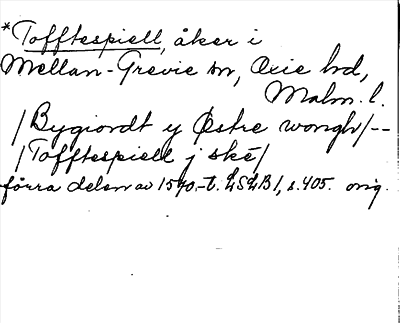 *Tofftespiell, åker i
Mellan-Grevie sn, Oxie hd,
Malm. l.
/Bygiordt y Østre wongh/--
/Tofftespiell j ské/
förra delen av 1570-t. LSLB 1, s. 405. orig.